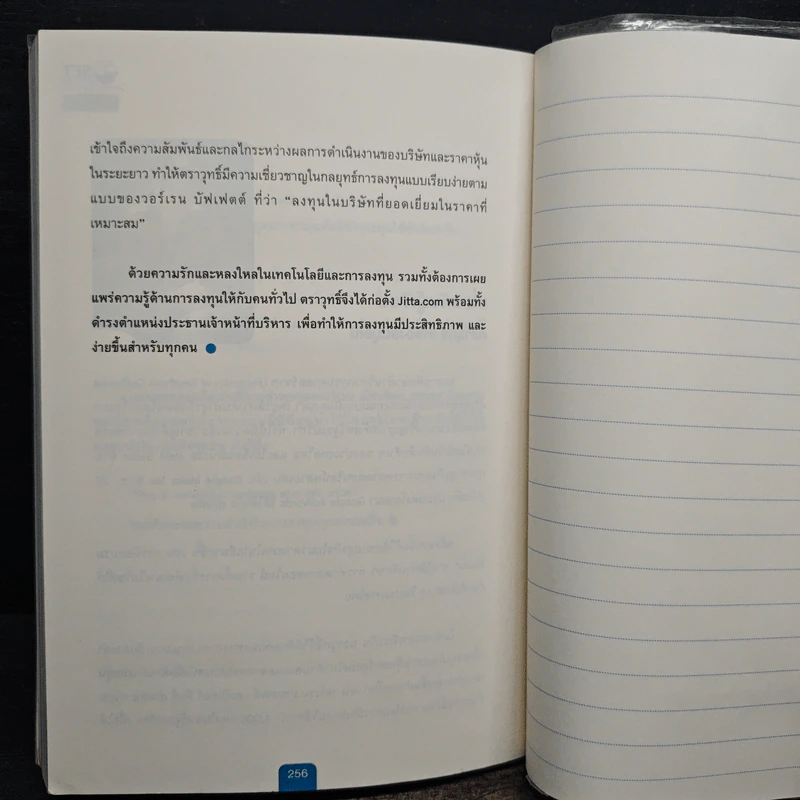 เข้าใจถึงความสัมพันธ์และกลไกระหว่างผลการดำเนินงานของบริษัทและราคาหุ้น
ในระยะยาว ทำให้ตราวุทธิ์มีความเชี่ยวชาญในกลยุทธ์การลงทุนแบบเรียบง่ายตาม
แบบของวอร์เรน บัฟเฟตต์ ที่ว่า “ลงทุนในบริษัทที่ยอดเยี่ยมในราคาที่
เหมาะสม”
ด้วยความรักและหลงใหลในเทคโนโลยีและการลงทุน รวมทั้งต้องการเผย
แพร่ความรู้ด้านการลงทุนให้กับคนทั่วไป ตราวุทธิ์จึงได้ก่อตั้ง Jitta.com พร้อมทั้ง
ดำรงตำแหน่งประธานเจ้าหน้าที่บริหาร เพื่อทำให้การลงทุนมีประสิทธิภาพ และ
ง่ายขึ้นสำหรับทุกคน
256